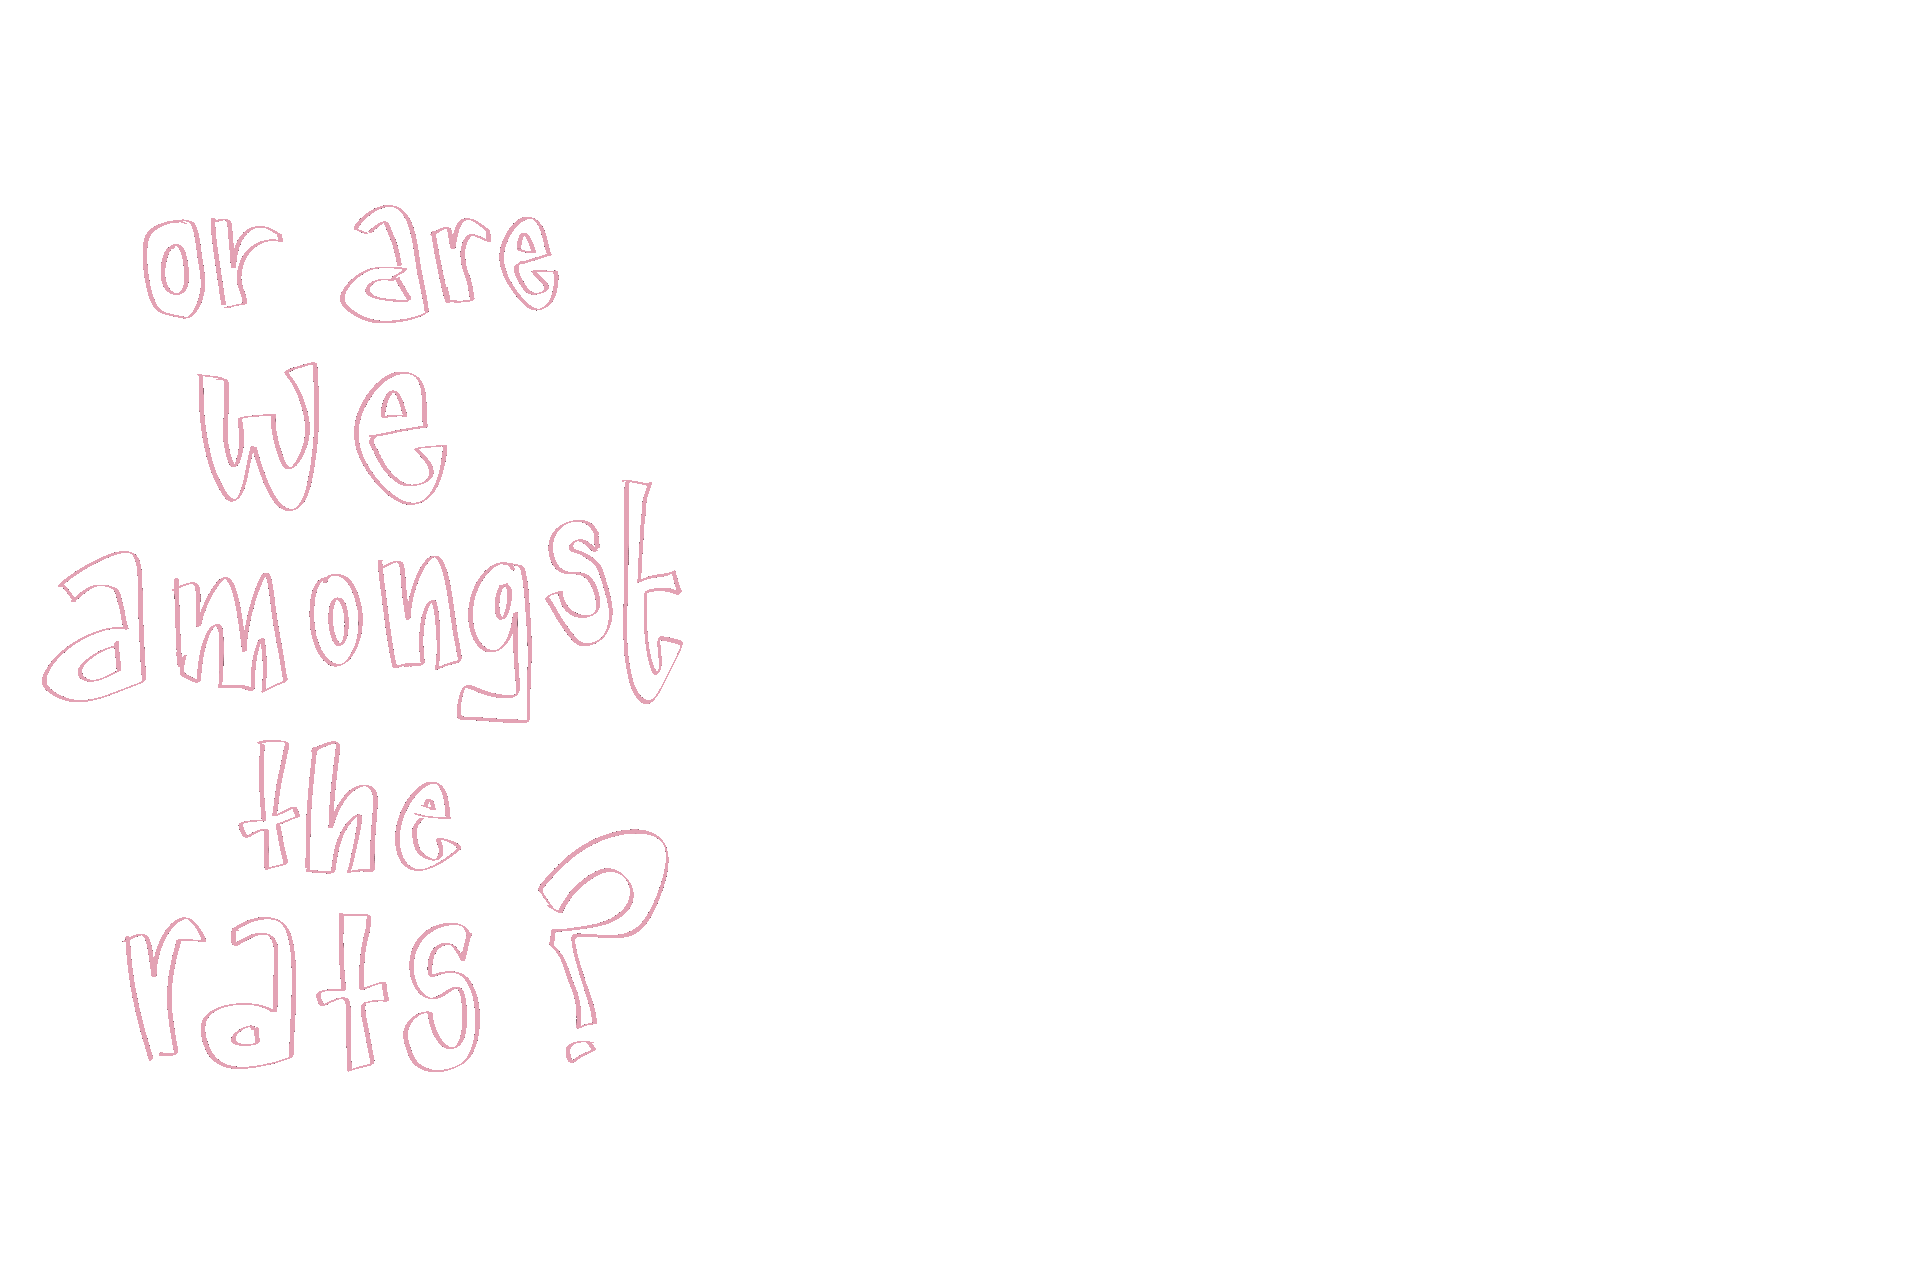 or are
we
amongst
the
rats?